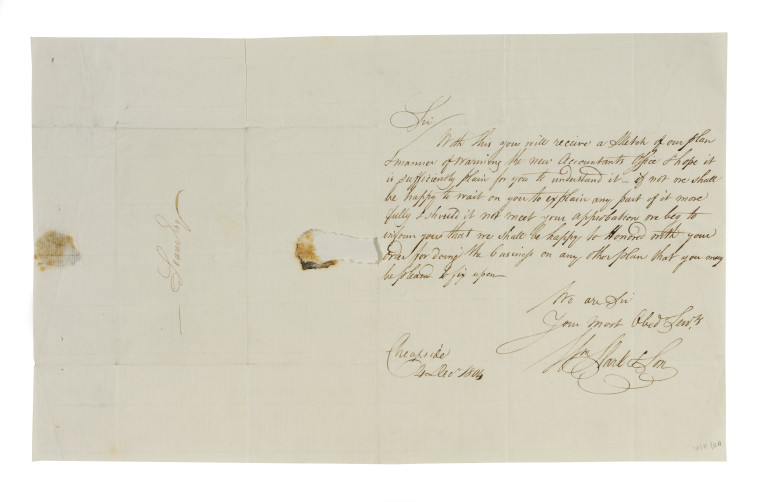 Sir
With this you will receive a Sketch of our plan
& manner of warming the new Accountants Office & hope it
is sufficiently plain for you to understand it – if not we shall
be happy to wait on you to explain any part of it more
fully & should it not meet your approbation we beg to
inform you that we shall be happy to be Honord with your
order for doing the business on any other plan that you may
be pleased to fix upon
We are Sir
Your most Obed Servts
Wm & Son
Cheapside
4 Decr
Soane Esqr